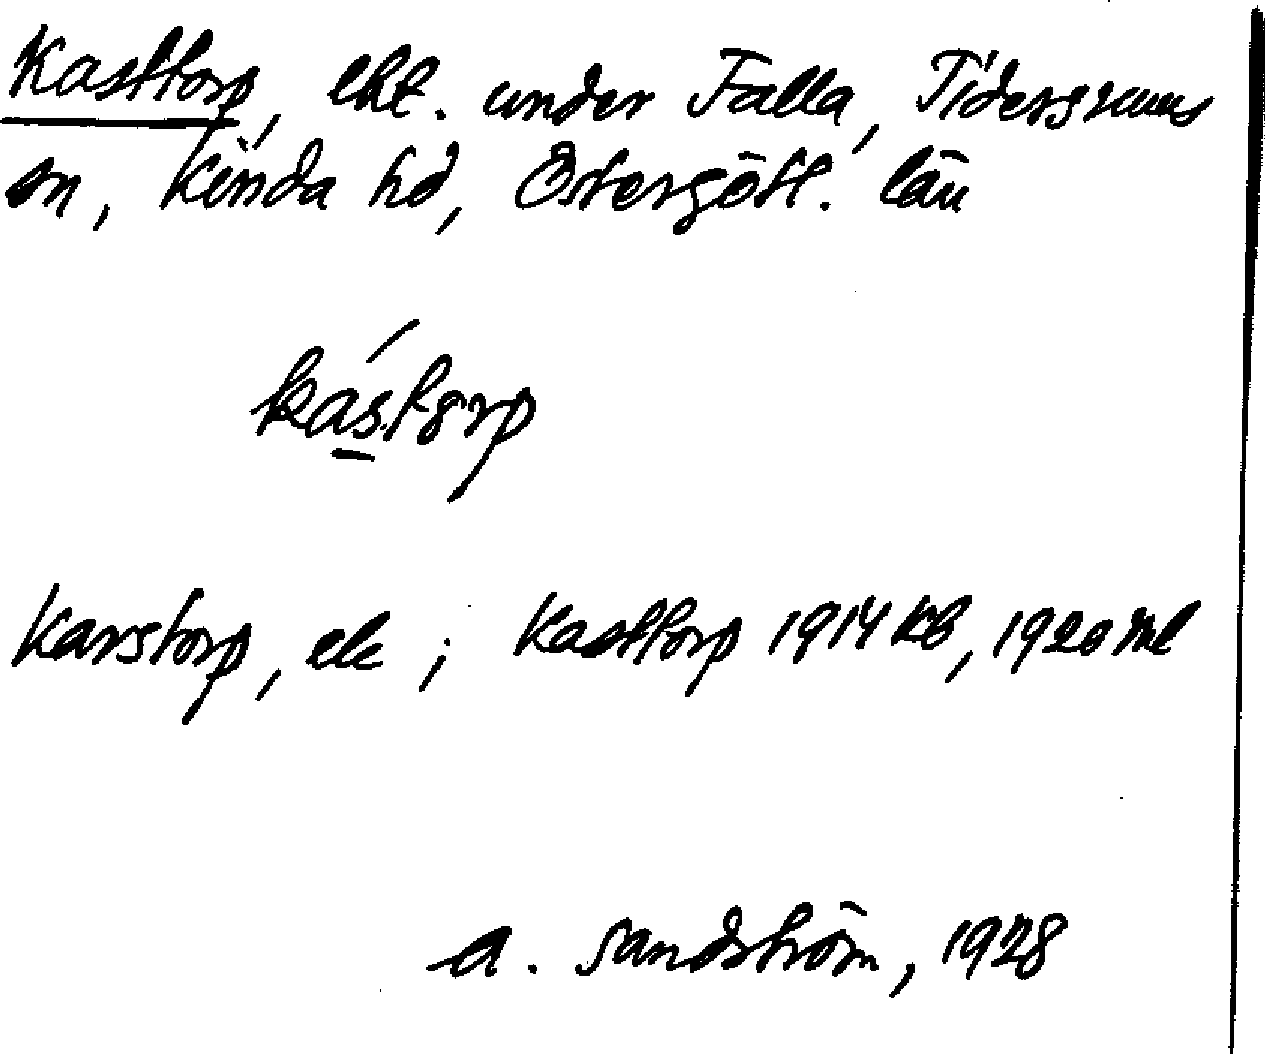 Kasttorp, lht. under Falla, Tidersrums
sn, Kinda hd, Östergötl. län
kástorp
Karstorp, ek ; Kasttorp 1914 kb, 1920 ml
A. Sandström, 1928